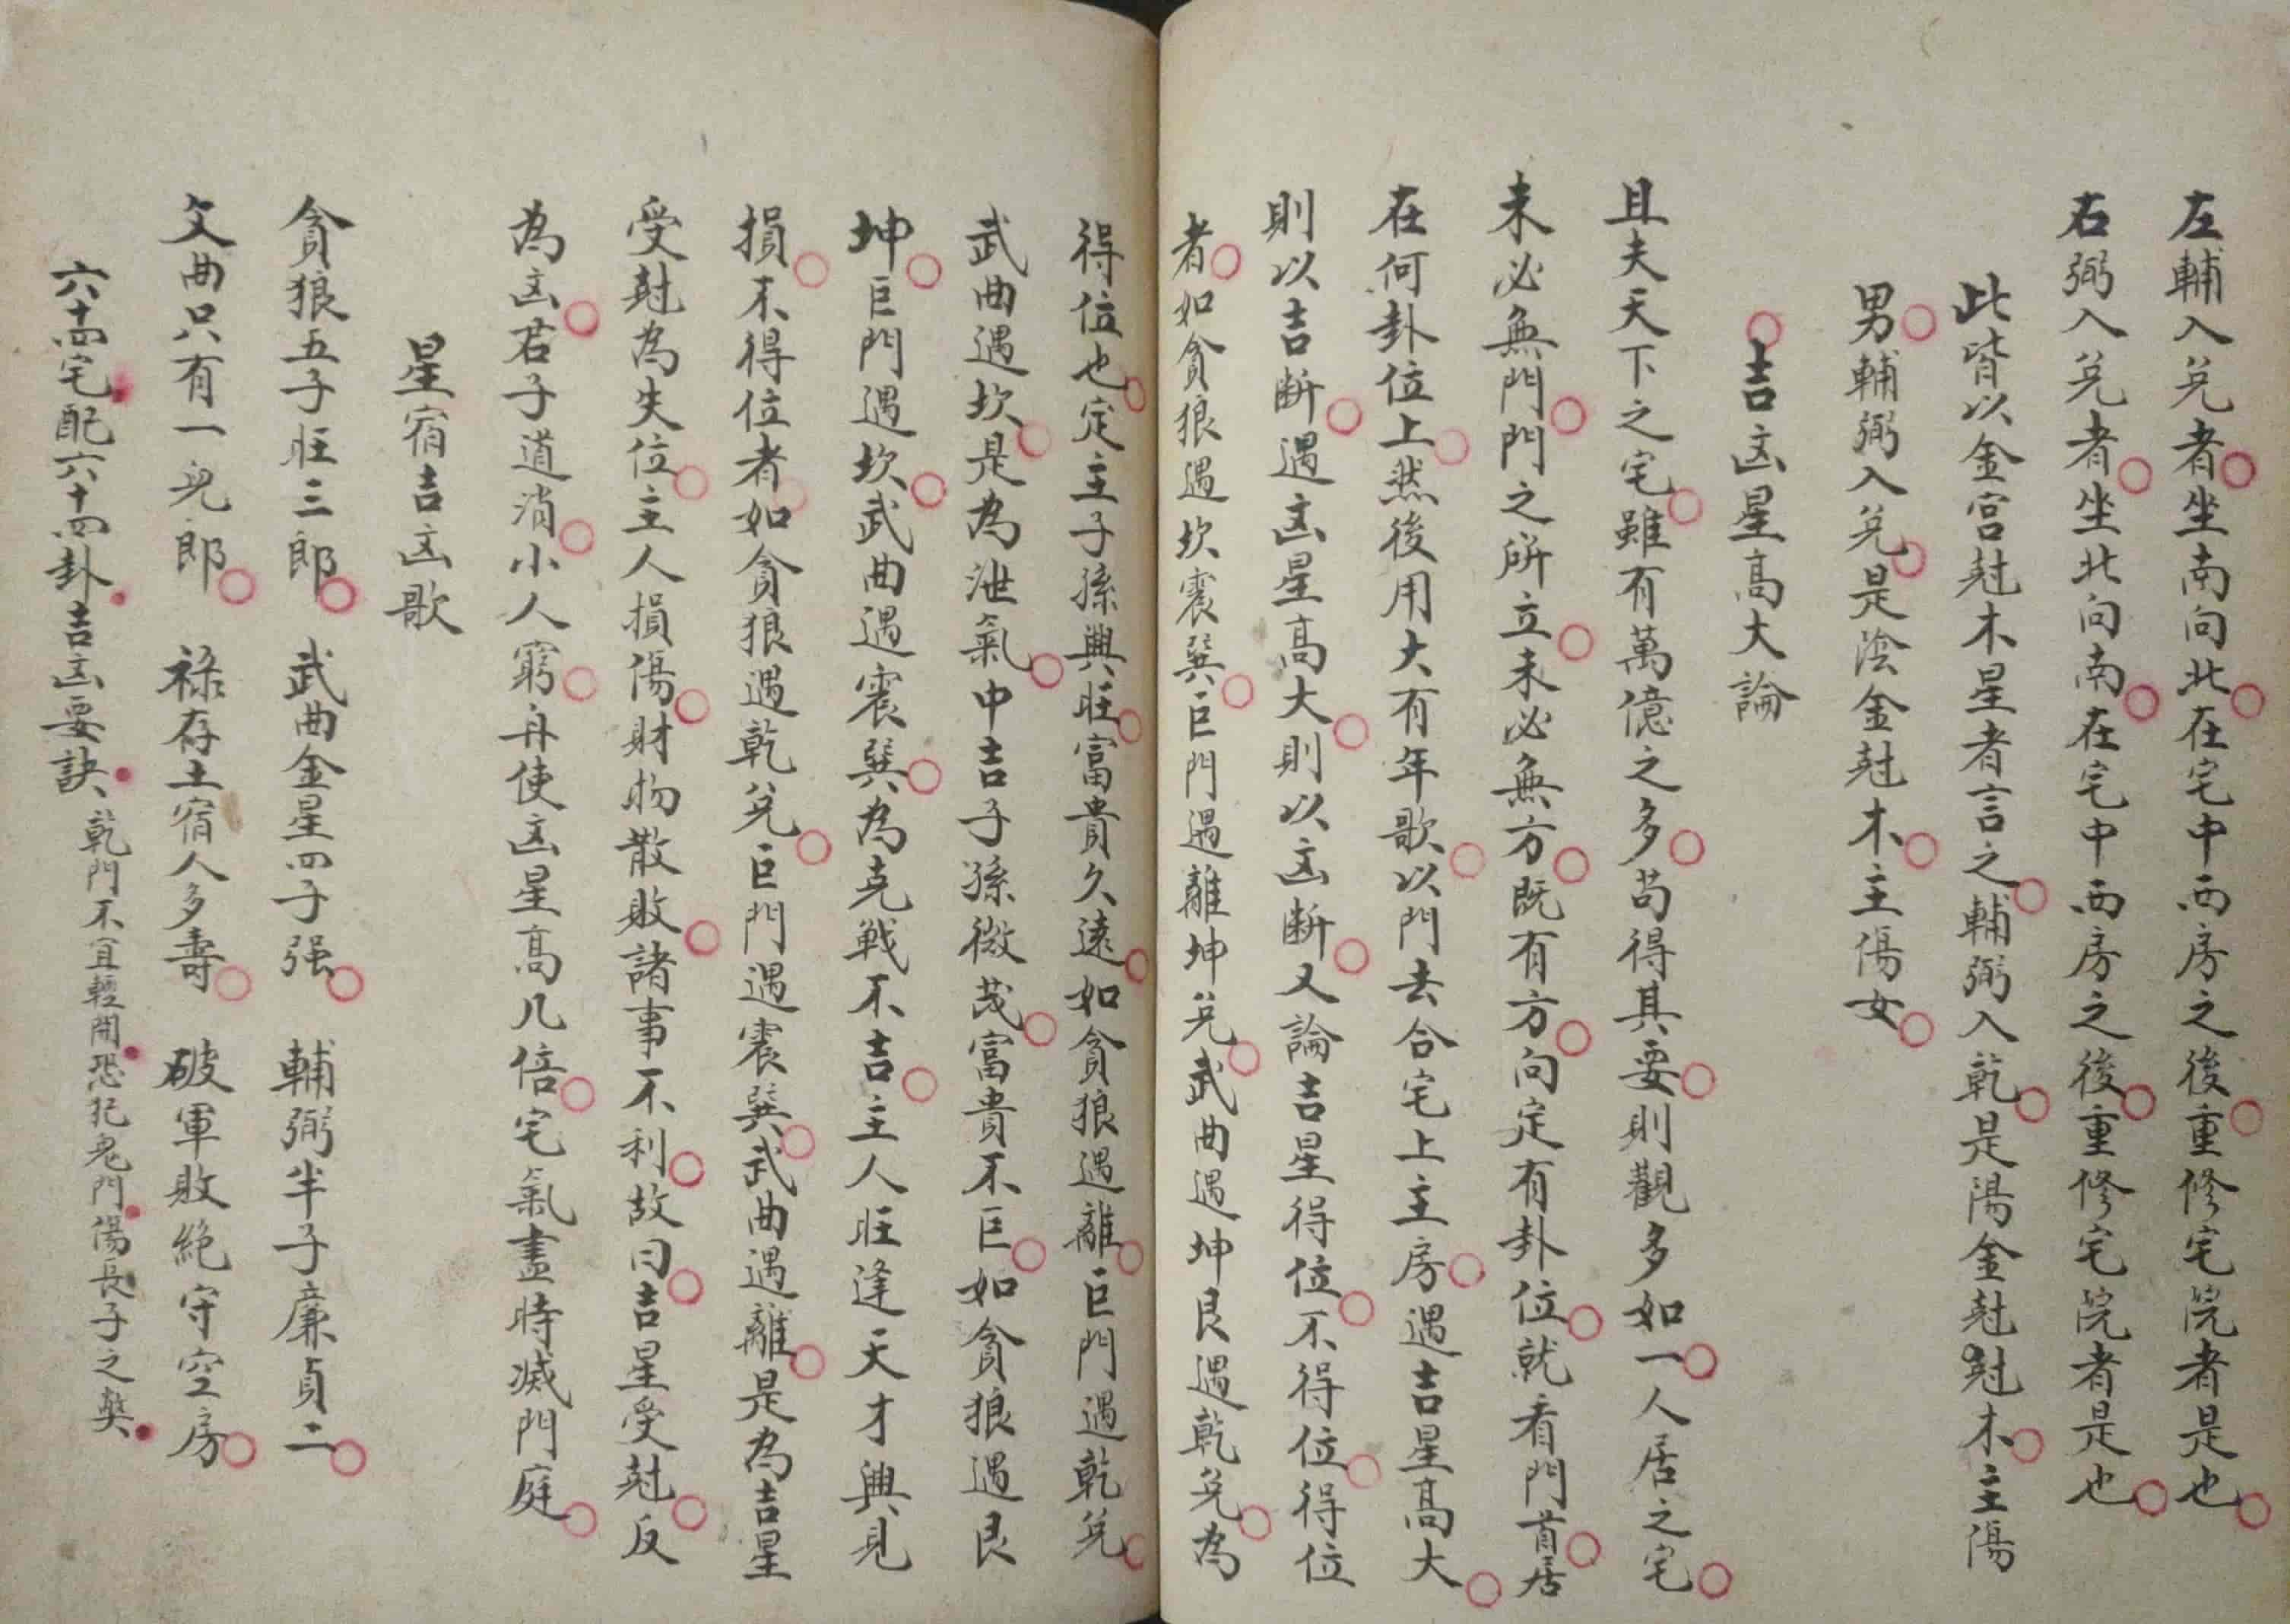 左輔入兌者坐南向北在宅中西房之後重修宅院者是也
右弼入兌者坐北向南在宅中西房之後重修宅院者是也
此皆以金宮尅木星者言之輔弼入乾是陽金尅尅木主傷
男輔弼入兌是陰金尅木主傷女
吉凶星高大論
且夫天下之宅雖有萬億之多苟得其要則觀多如一人居之宅
未必無門門之所立未必無方既有方向定有卦位就看門首居
在何卦位上然後用大有年歌以門去合宅上主房遇吉星高大
則以吉断遇凶星高大則以凶断又論吉星得位不得位得位
者如貪狼遇坎震巽巨門遇離坤兌武曲遇坤艮遇乾兌為
得位也定主子孫興旺富貴久遠如貪狼遇離巨門遇乾兌
武曲遇坎是為泄氣中吉子孫微茂富貴不巨如貪狼遇艮
坤巨門遇坎武曲遇震巽為克戰不吉主人旺逢天才興見
損不得位者如貪狼遇乾兌巨門遇震巽武曲遇離是為吉星
受尅為失位主人損傷財物散敗諸事不利故曰吉星受尅反
為凶君子道消小人窮舟使凶星高几倍宅氣盡時滅門庭
星宿吉凶歌
貪狼五子旺三郎 武曲金星四子强 輔弼半子廉貞二
文曲只有一兒郎 祿存土宿人多壽 破軍敗絶守空房
六十四宅配六十四卦吉凶要訣、乾門不宜輕開恐犯鬼門傷長子之獘